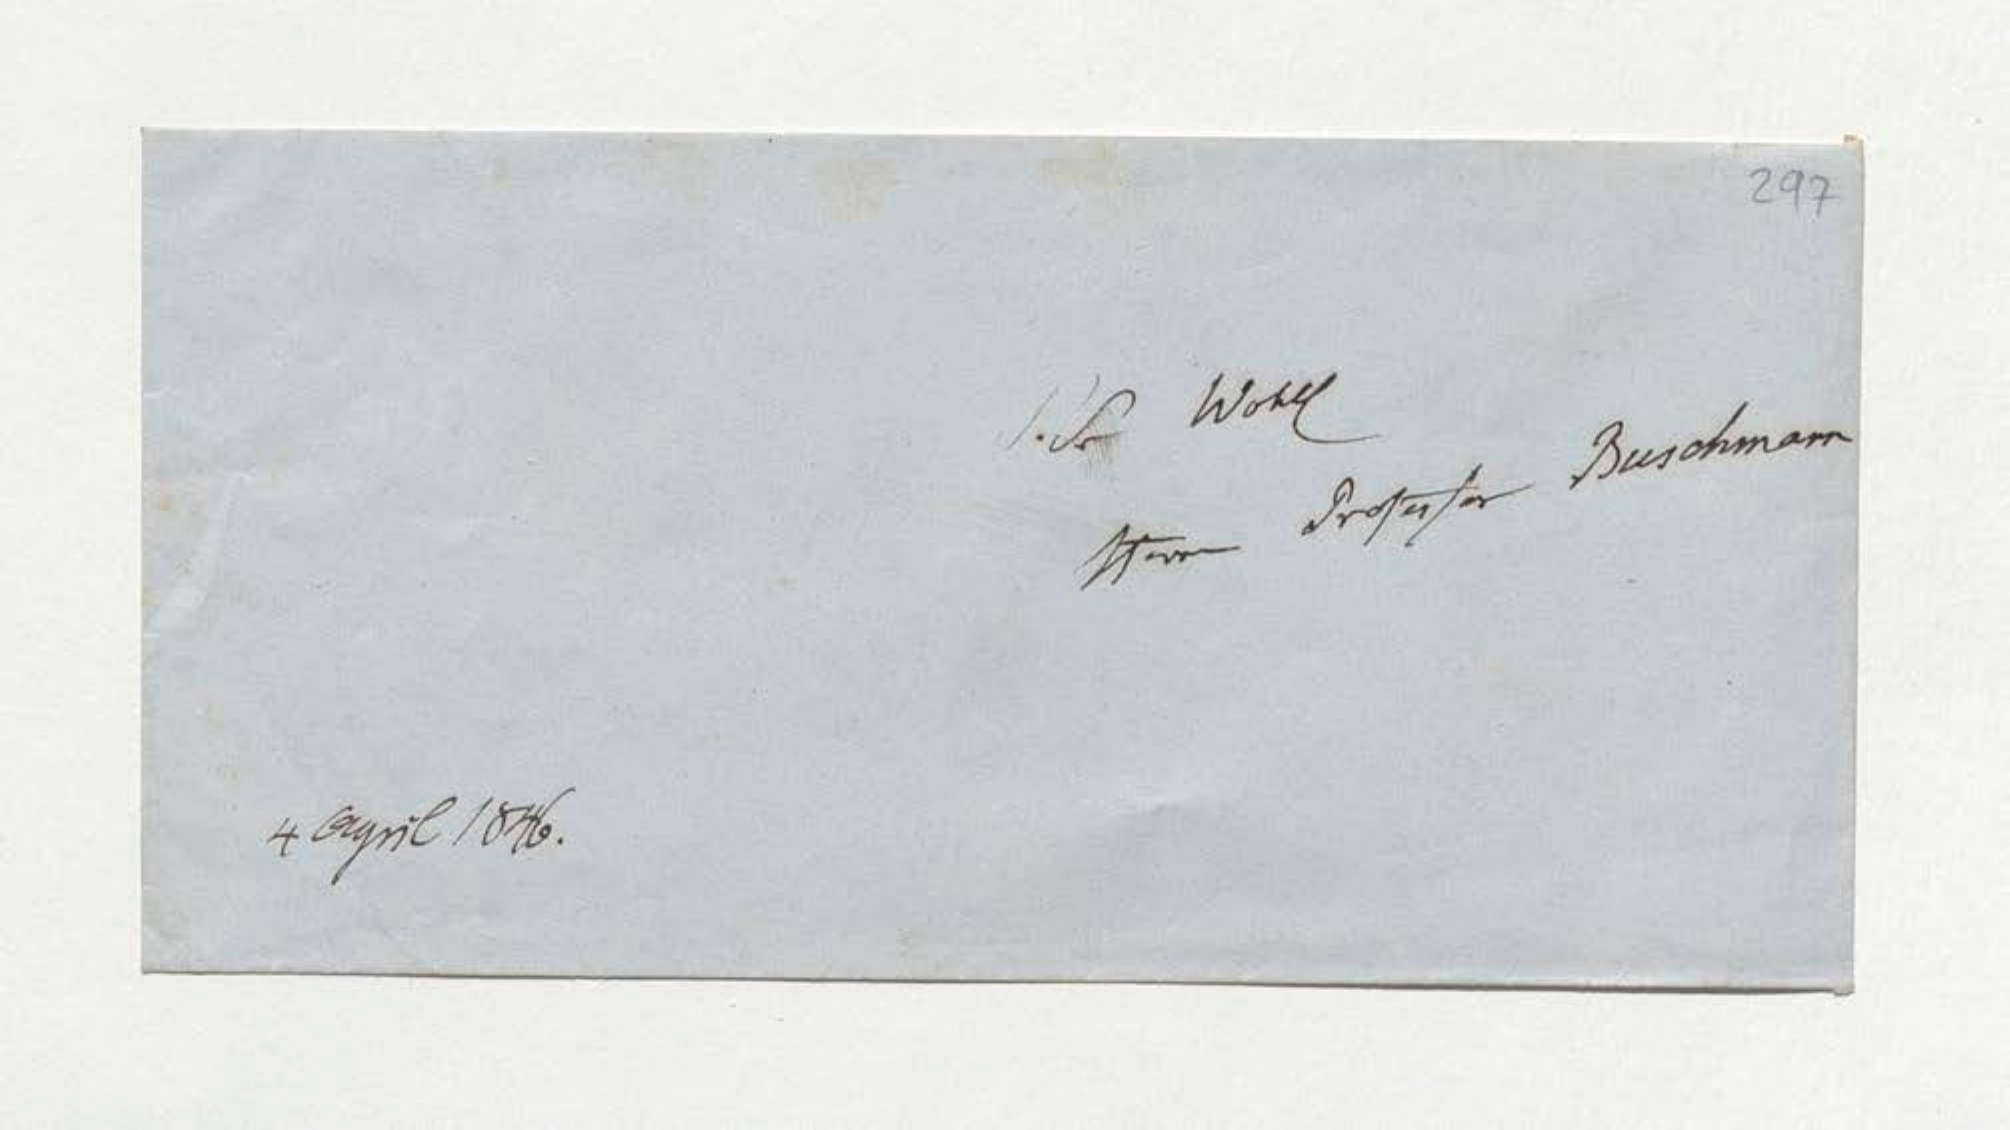 297
S. Wohl
Herrn Professor Buschmann
4 April 1846.